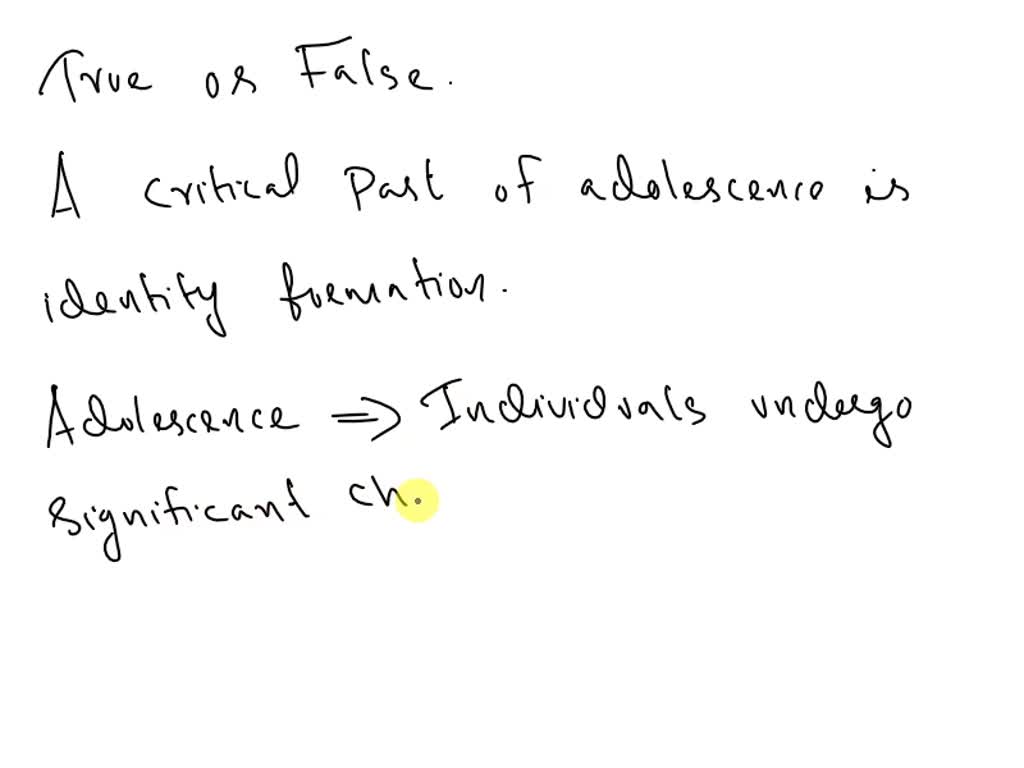 True or False.
A critical part of adolescence is
identity formation.
Adolescence ⇒ Individuals undergo
significant ch